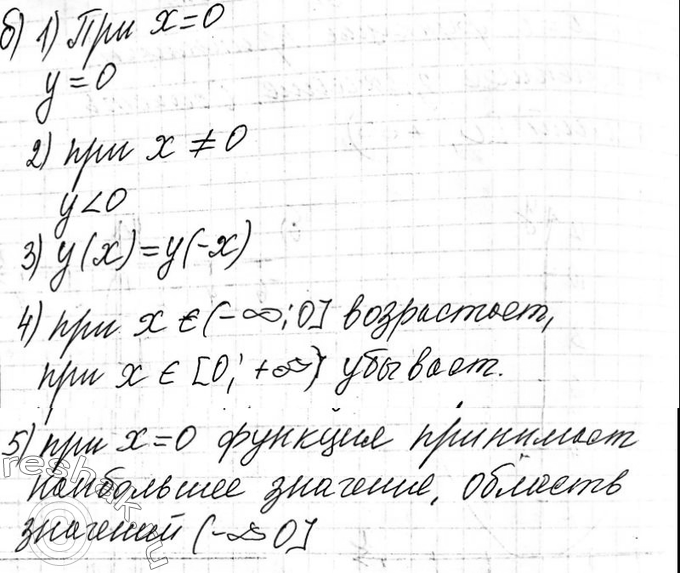 б) 1) При x=0
y=0
2) при x ≠ 0
y<0
3) y(x)=y(-x)
4) при x ∈ (-∞; 0] возрастает,
при x ∈ [0; +∞) убывает.
5) при x=0 функция принимает
наибольшее значение, область
значений (-∞ 0]
reshak.ru